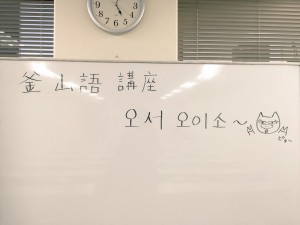 釜山語 講座
오서 오이소~